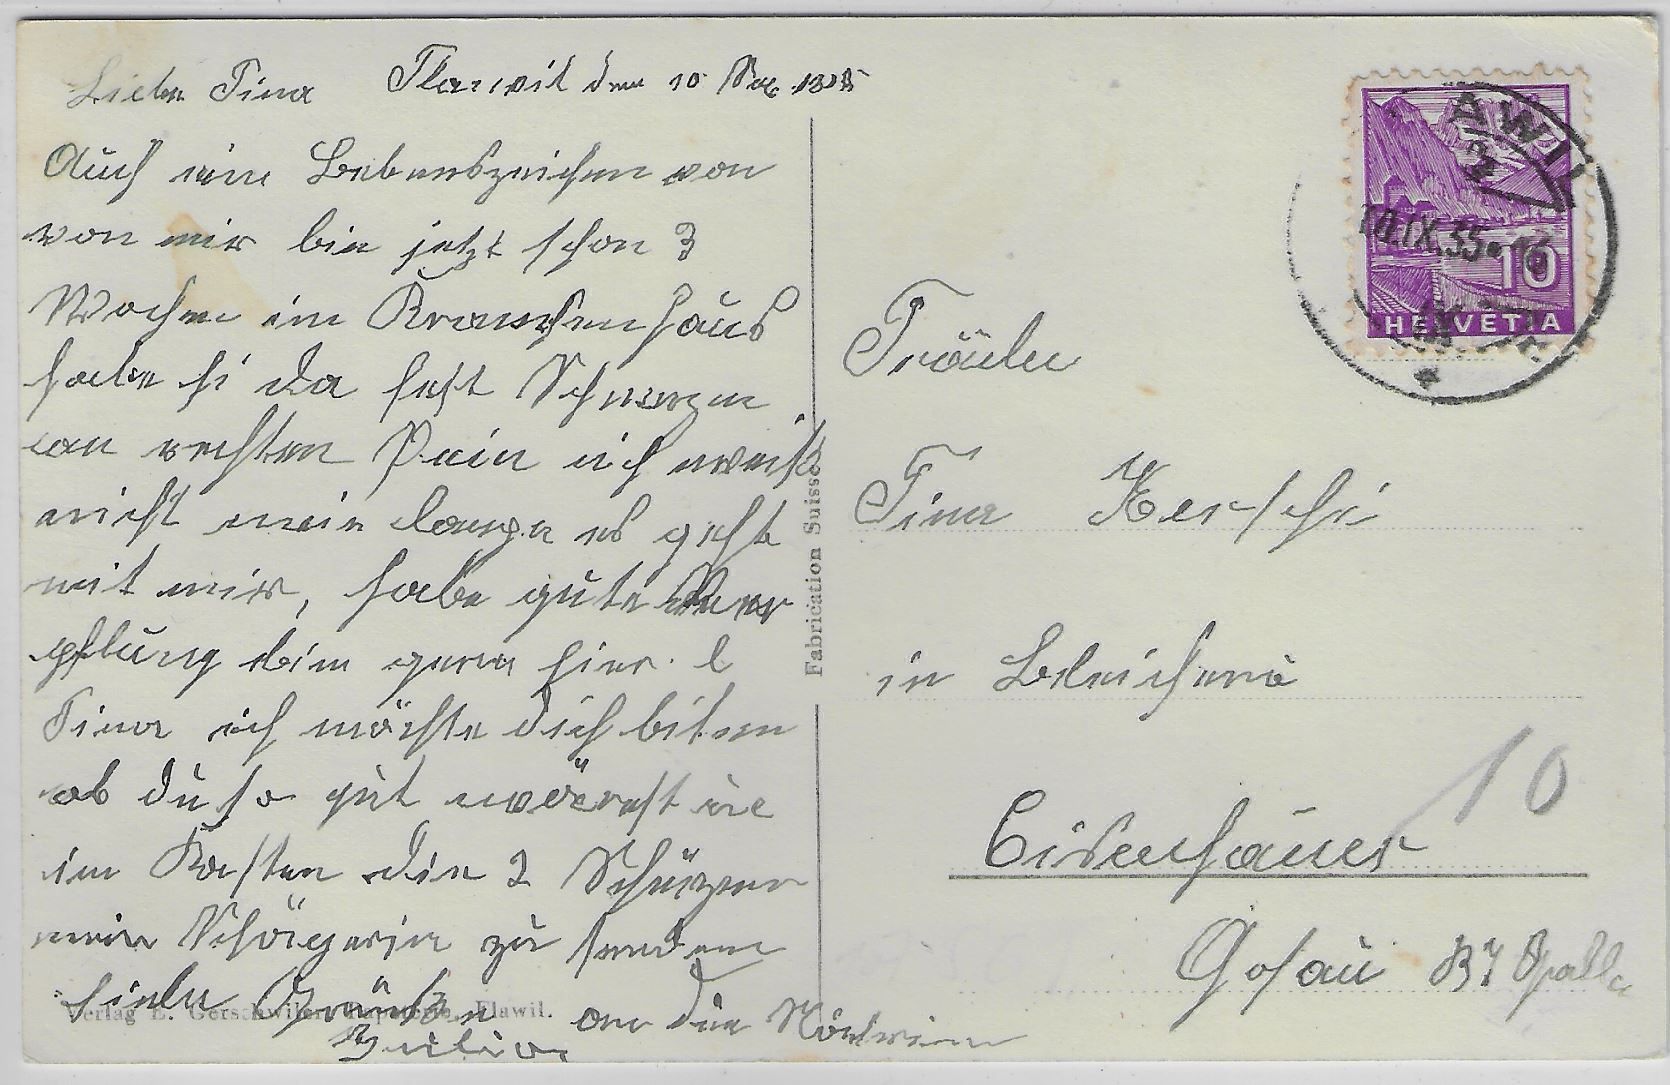 Liebe Tina Flawil den 10 Sep. 1935
Auch eine Lebenszeichen von
von mir bin jetzt schon 3
Wochen im Krankenhaus
habe hi da fest Schmerzen
an rechten Pein ich weiß
nicht wie lange es geht
mit mir, habe gute Ver
pflung bin gern hier. l
Tina ich möchte dich biten
ob du so gut wäerest
im Kasten die 2 Schürzen
mein Schögerin zu senden
fiele Grüße an die
Verlag E. Gerschwiler, Papeterie, Flawil.
Fabrication Suisse
AWIL
10.IX.35
10
HELVETIA
Fräulei
Tina Kerschi
in Bleicherei
Eisenhauer
10
Gosau